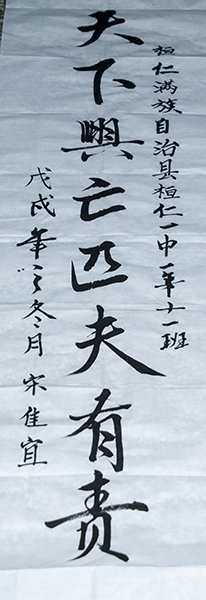 桓仁满族自治县桓仁一中一年十一班
天下興亡匹夫有责
戊戌年之冬月 宋佳宜